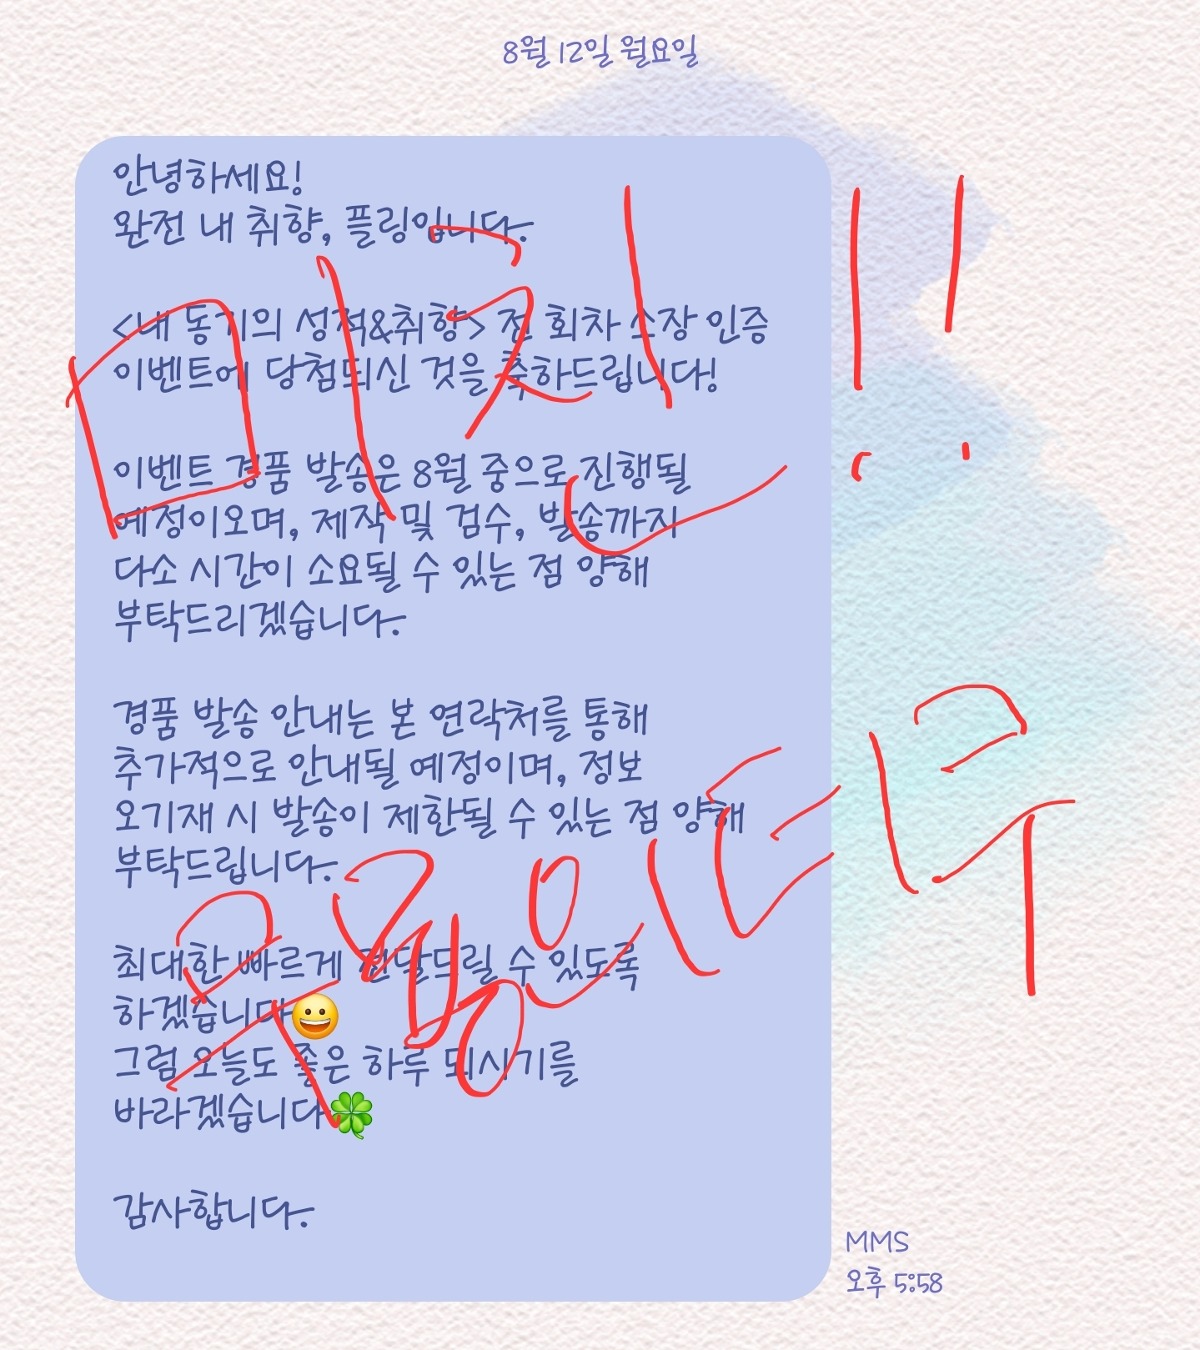 8월 12일 월요일
안녕하세요!
완전 내 취향, 플링입니다.
<내 동기의 성적&취향> 전 회차 소장 인증
이벤트에 당첨되신 것을 축하드립니다!
이벤트 경품 발송은 8월 중으로 진행될
예정이오며, 제작 및 검수, 발송까지
다소 시간이 소요될 수 있는 점 양해
부탁드리겠습니다.
경품 발송 안내는 본 연락처를 통해
추가적으로 안내될 예정이며, 정보
오기재 시 발송이 제한될 수 있는 점 양해
부탁드립니다.
최대한 빠르게 전달드릴 수 있도록
하겠습니다😀
그럼 오늘도 좋은 하루 되시기를
바라겠습니다🍀
감사합니다.
MMS
오후 5:58
미친!!